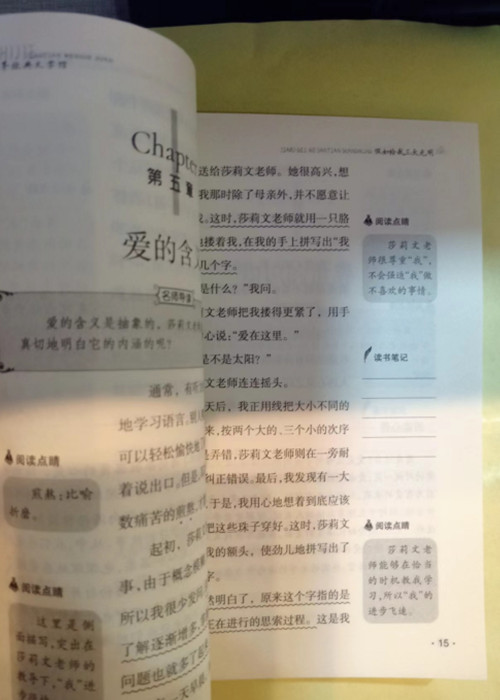 Chapter
第五章
爱的含
名师导读
爱的含义是抽象的，莎莉文
真切地明白它的内涵的呢？
通常，
地学习语言，
可以轻松愉快地
着说出口。但是
数痛苦的煎熬，
起初，莎莉
事，由于概念
所以我很少发问
了解逐渐增多，
问题也就多了起
阅读点睛
煎熬：比喻
折磨。
阅读点睛
这里是侧
面描写，突出在
莎莉文老师的
教导下，“我”进
假如给我三天光明
送给莎莉文老师。她很高兴，想
我那时除了母亲外，并不愿意让
这时，莎莉文老师就用一只胳
搂着我，在我的手上拼写出“我
几个字。
是什么？”我问。
文老师把我搂得更紧了，用手
心说：“爱在这里。”
是不是太阳？”
文老师连连摇头。
天后，我正用线把大小不同的
来，按两个大的、三个小的次序
弄错，莎莉文老师则在一旁耐
纠正错误。最后，我发现有一大
于是，我用心地想着到底应该
把这些珠子穿好。这时，莎莉文
我的额头，使劲儿地拼写出了
字。
明白了，原来这个字指的是
正在进行的思索过程。这是我
阅读点睛
莎莉文老
师很尊重“我”，
不会强迫“我”做
不喜欢的事情。
读书笔记
阅读点睛
莎莉文老
师能够在恰当
的时机教我学
习，所以“我”的
进步飞速。
·15·